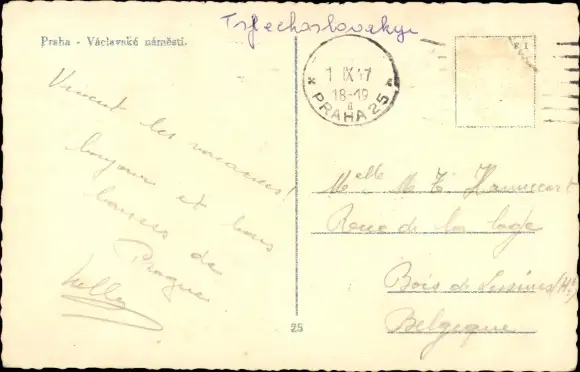 Tsjechoslovakije
Praha - Václavské náměstí.
F I
1 IX 47
18-19
a
* PRAHA 25 *
Vivent les vacances!
bonjour et bons
baisers de
Prague
Melle M T Hannecart
Rue de la loge
Bois de Lessines (Ht)
Belgique
25